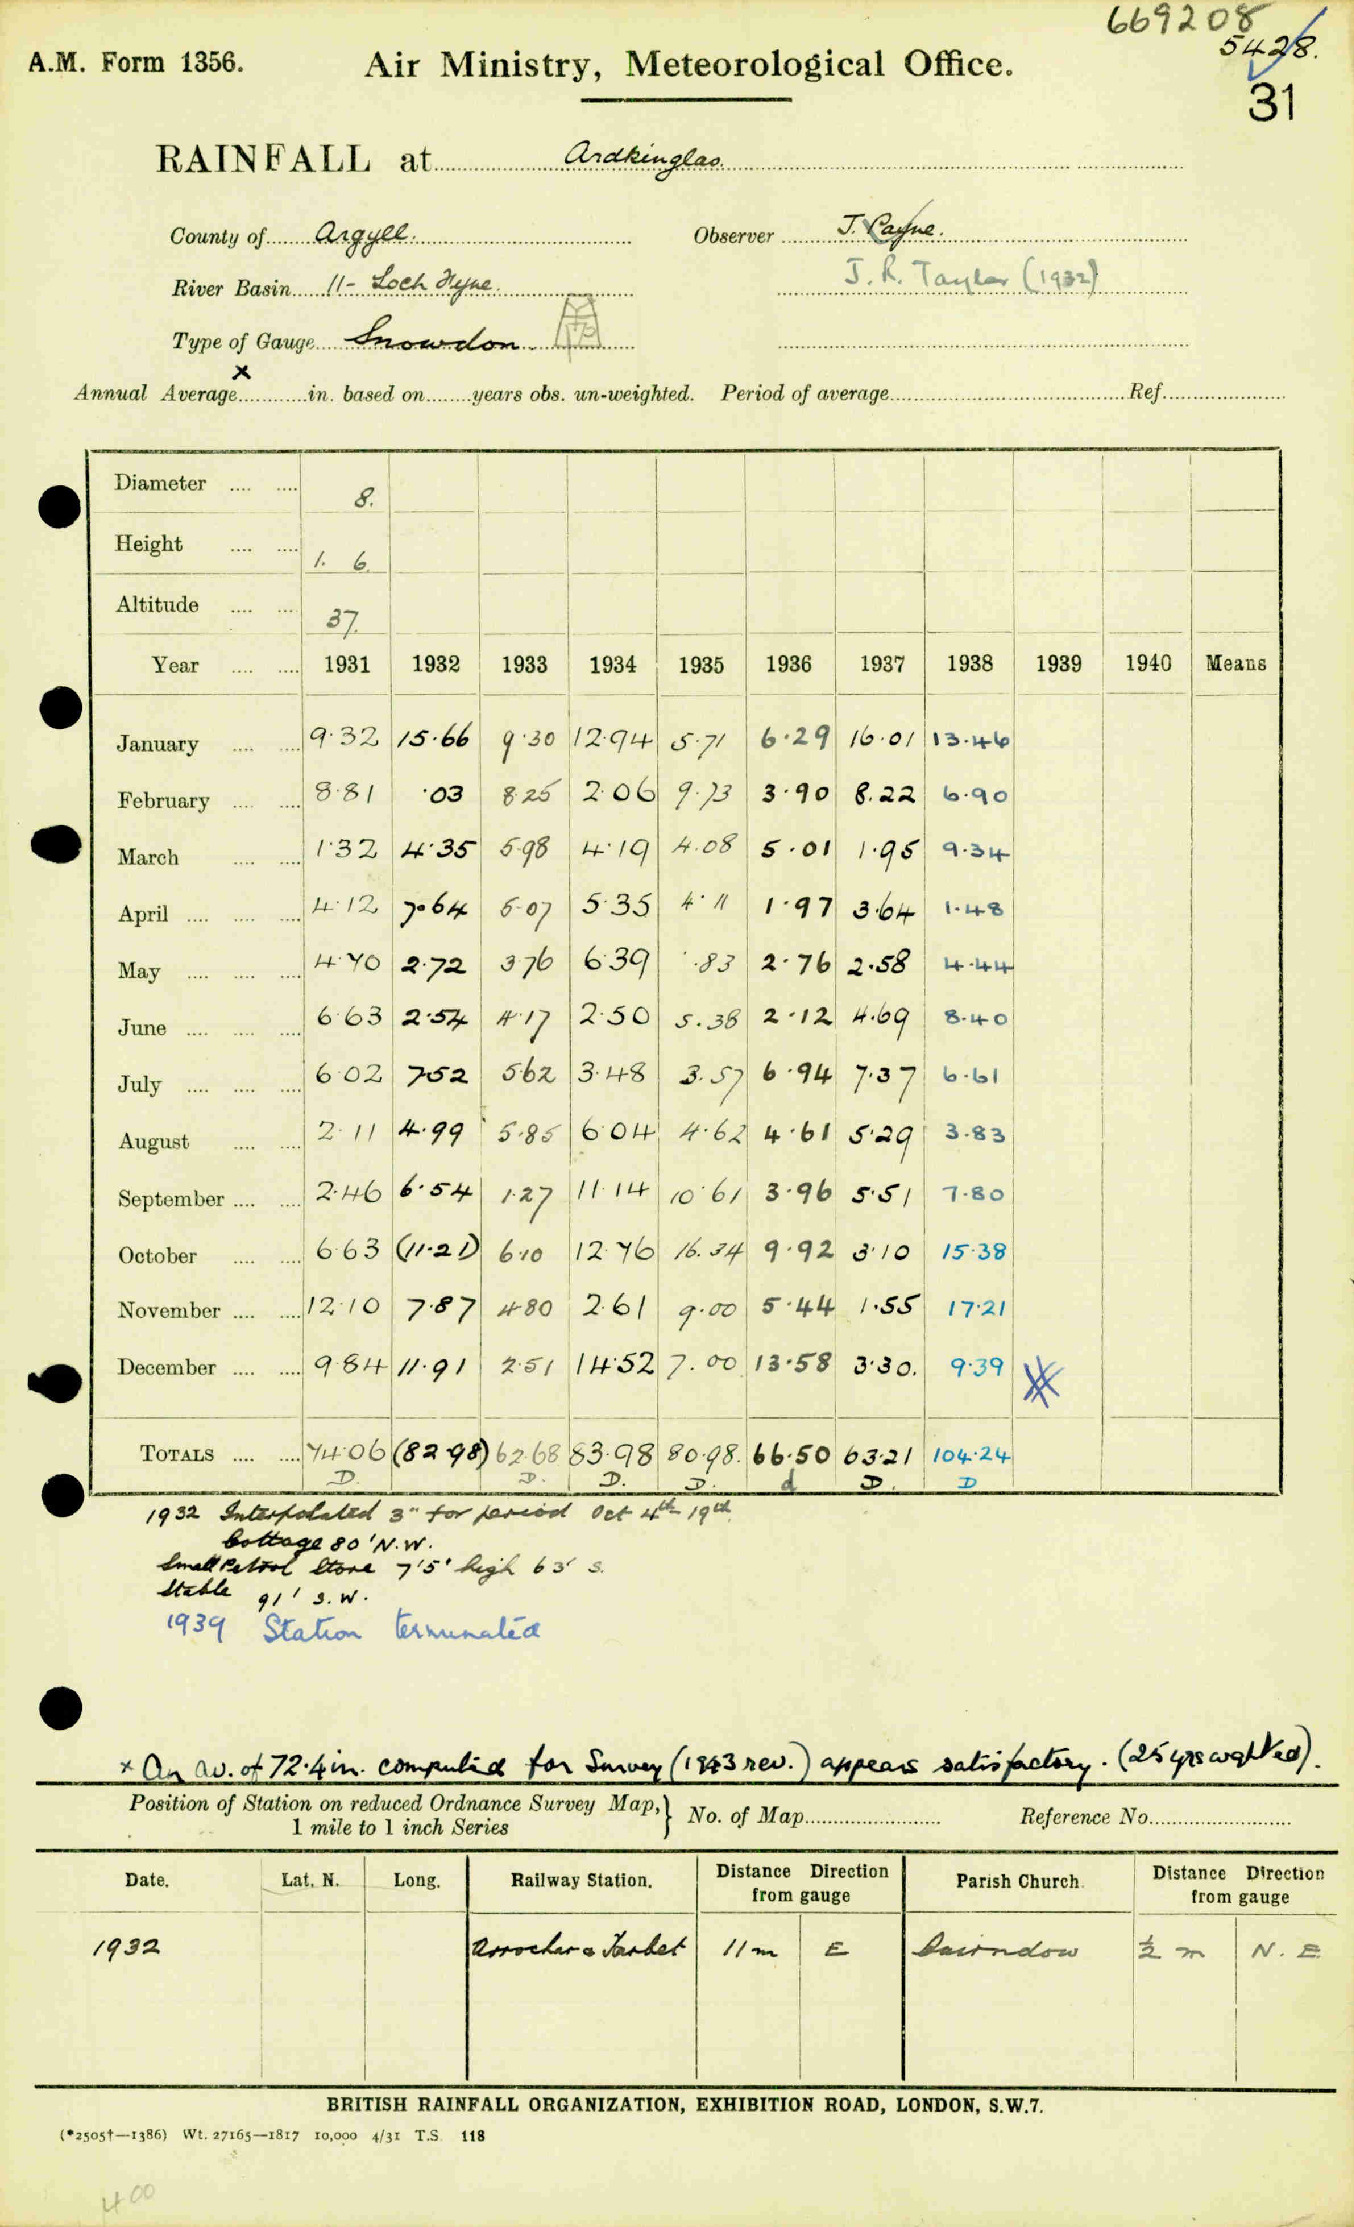 669208
5428.
31
A.M. Form 1356. Air Ministry, Meteorological Office.
RAINFALL at Ardkinglas.
County of Argyll. Observer J. Payne.
River Basin 11- Loch Fyne. J. R. Taylor (1932)
Type of Gauge Snowdon.
x
Annual Average in. based on years obs. un-weighted. Period of average Ref.
Diameter 8.
Height 1. 6.
Altitude 37.
Year 1931 1932 1933 1934 1935 1936 1937 1938 1939 1940 Means
January 9.32 15.66 9.30 12.94 5.71 6.29 16.01 13.46
February 8.81 .03 8.25 2.06 9.73 3.90 8.22 6.90
March 1.32 4.35 5.98 4.19 4.08 5.01 1.95 9.34
April 4.12 7.64 5.07 5.35 4.11 1.97 3.64 1.48
May 4.70 2.72 3.76 6.39 .83 2.76 2.58 4.44
June 6.63 2.54 4.17 2.50 5.38 2.12 4.69 8.40
July 6.02 7.52 5.62 3.48 3.57 6.94 7.37 6.61
August 2.11 4.99 5.85 6.04 4.62 4.61 5.29 3.83
September 2.46 6.54 1.27 11.14 10.61 3.96 5.51 7.80
October 6.63 (11.21) 6.10 12.76 16.34 9.92 3.10 15.38
November 12.10 7.87 4.80 2.61 9.00 5.44 1.55 17.21
December 9.84 11.91 2.51 14.52 7.00 13.58 3.30. 9.39
TOTALS 74.06 (82.98) 62.68 83.98 80.98. 66.50 63.21 104.24
D. D. D. D. d D. D
1932 Interpolated 3" for period Oct 4th - 19th.
Cottage 80' N.W.
Small Petrol Store 7'5" high 63' S.
Stable 91' S.W.
1939 Station terminated
x An av. of 72.4 in. computed for Survey (1943 rev.) appears satisfactory. (25 yrs wghted).
Position of Station on reduced Ordnance Survey Map, } No. of Map Reference No.
1 mile to 1 inch Series
Date. Lat. N. Long. Railway Station. Distance Direction from gauge Parish Church. Distance Direction from gauge
1932 Arrochar & Tarbet 11 m E Cairndow ½ m N. E.
BRITISH RAINFALL ORGANIZATION, EXHIBITION ROAD, LONDON, S.W.7.
(*2505†—1386) Wt. 27165—1817 10,000 4/31 T.S. 118
400